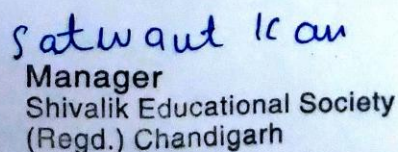 Satwant Kau
Manager
Shivalik Educational Society
(Regd.) Chandigarh